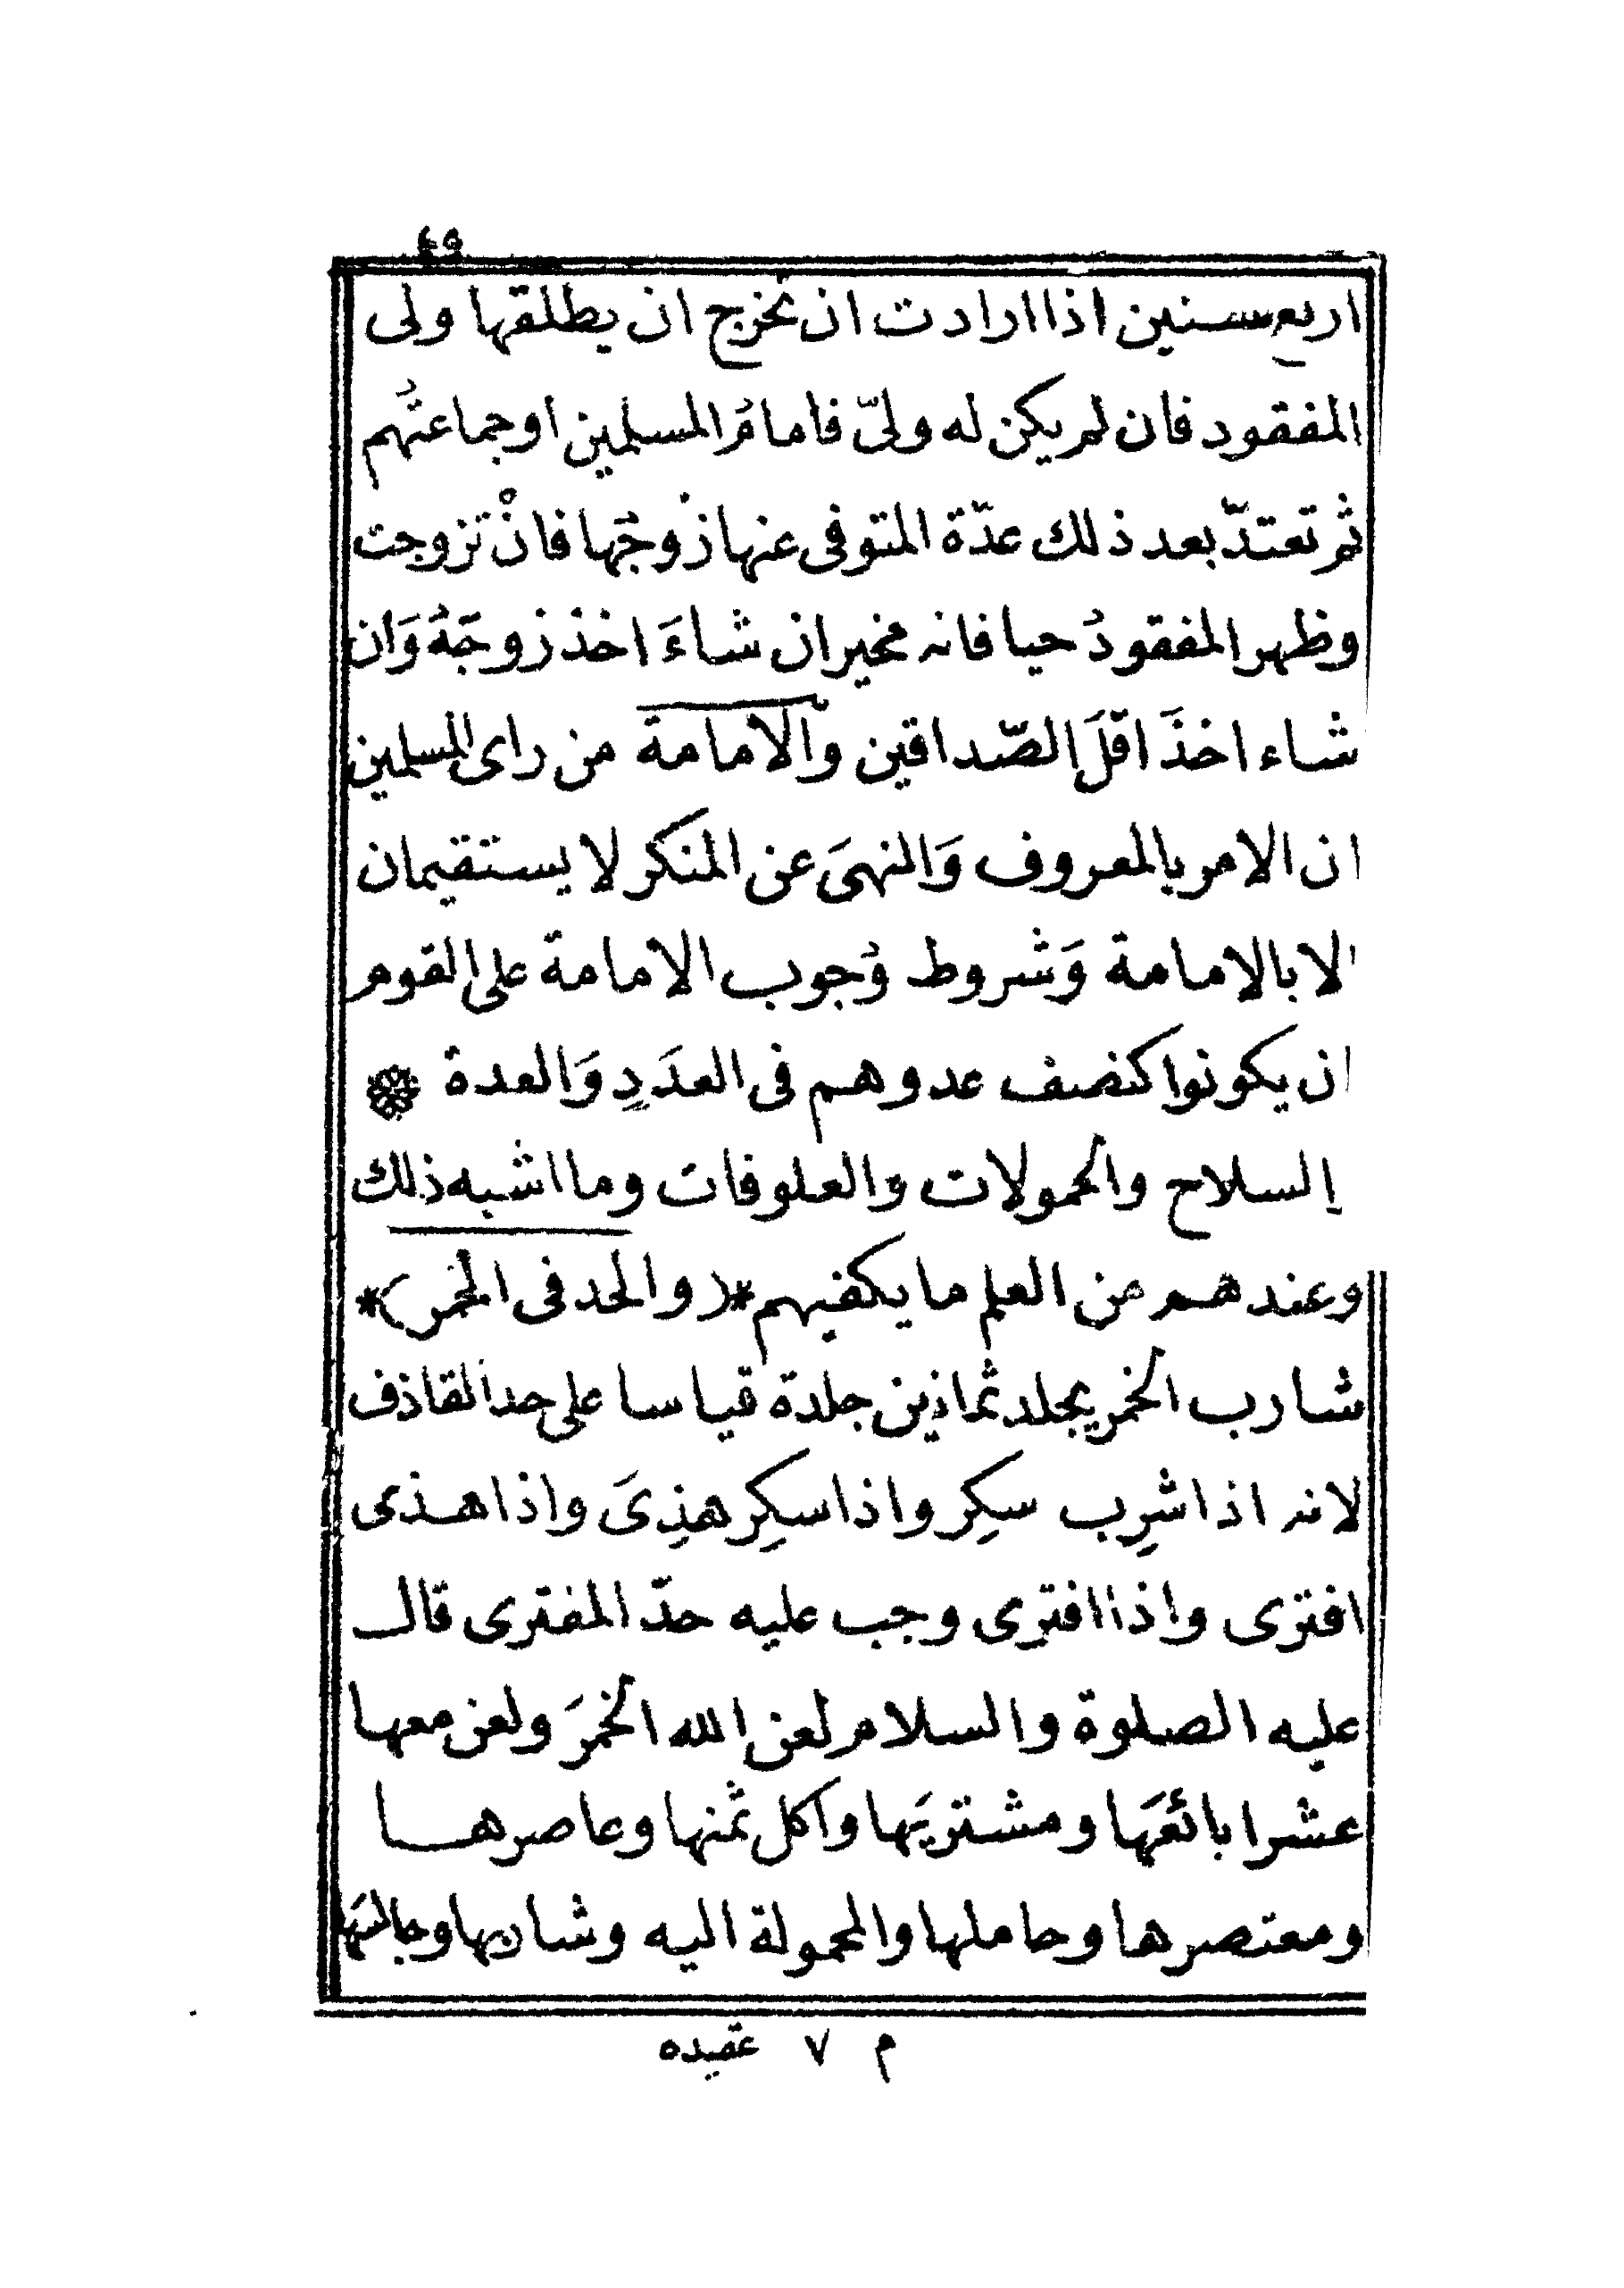 ٤٩
اربع سنين اذا ارادت ان تخرج ان يطلقها ولى
المفقود فان لم يكن له ولىّ فامامُ المسلمين او جماعتُهم
ثم تعتدّ بعد ذلك عدّة المتوفى عنها زوجُها فانْ تزوجت
وظهر المفقودُ حيا فانه مخير ان شاءَ اخذ زوجَتهُ وَان
شاء اخذَ اقّلَ الصّداقين وَّالامامة من راى المسلمين
ان الامر بالمعروف وَالنهىَ عن المنكر لا يستقيمان
الا بالامامة وَشروط وُجوب الامامة على القوم
ان يكونوا كنصف عدوهم فى العدَدِ وَالعدة ۞
اِلسلاح والحمولات والعلوفات وما اشبه ذلك
وعندهم من العلم ما يكفيهم *( والحد فى الخمر )*
شارب الخمر يجلد ثمانين جلدة قياسا على حد القاذف
لانه اذا شرِب سكِر واذا سكِر هذِىَ واذا هذى
افترى واذا افترى وجب عليه حدّ المفترى قال
عليه الصلوة والسلام لعن الله الخمرَ ولعن معها
عشرا بائعَها ومشتريَها وآكل ثمنها وعاصرها
ومعتصرها وحاملها والمحمولة اليه وشاربها وجالسَها
م ٧ عقيده